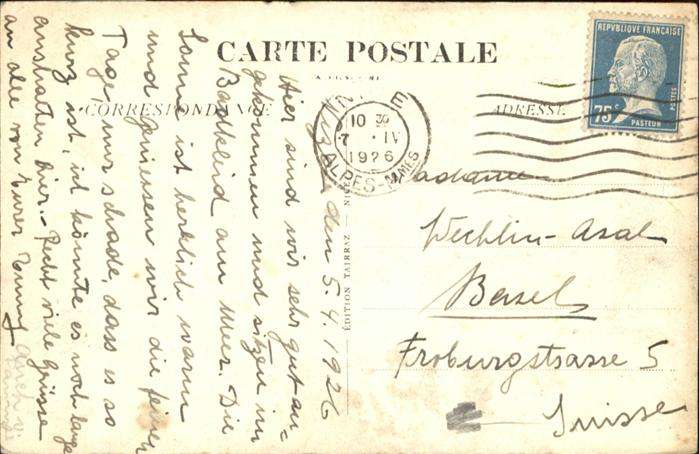 CARTE POSTALE
CORRESPONDANCE
ADRESSE
REPUBLIQUE FRANÇAISE
POSTES
75c
PASTEUR
NICE
10 30
7 · IV
1926
ALPES-MMES
ÉDITION TAIRRAZ — NICE
den 5.4.1926
Hier sind wir sehr gut an-
gekommen und sitzen im
Badkleid am Meer. Die
Sonne ist herrlich warm
und geniessen wir die feinen
Tage, nur schade, dass es so
kurz ist, ich könnte es noch lange
aushalten hier. Recht viele Grüsse
an alle von Eurer
Madame
Wechlin-Asal
Basel
Froburgstrasse 5
Suisse